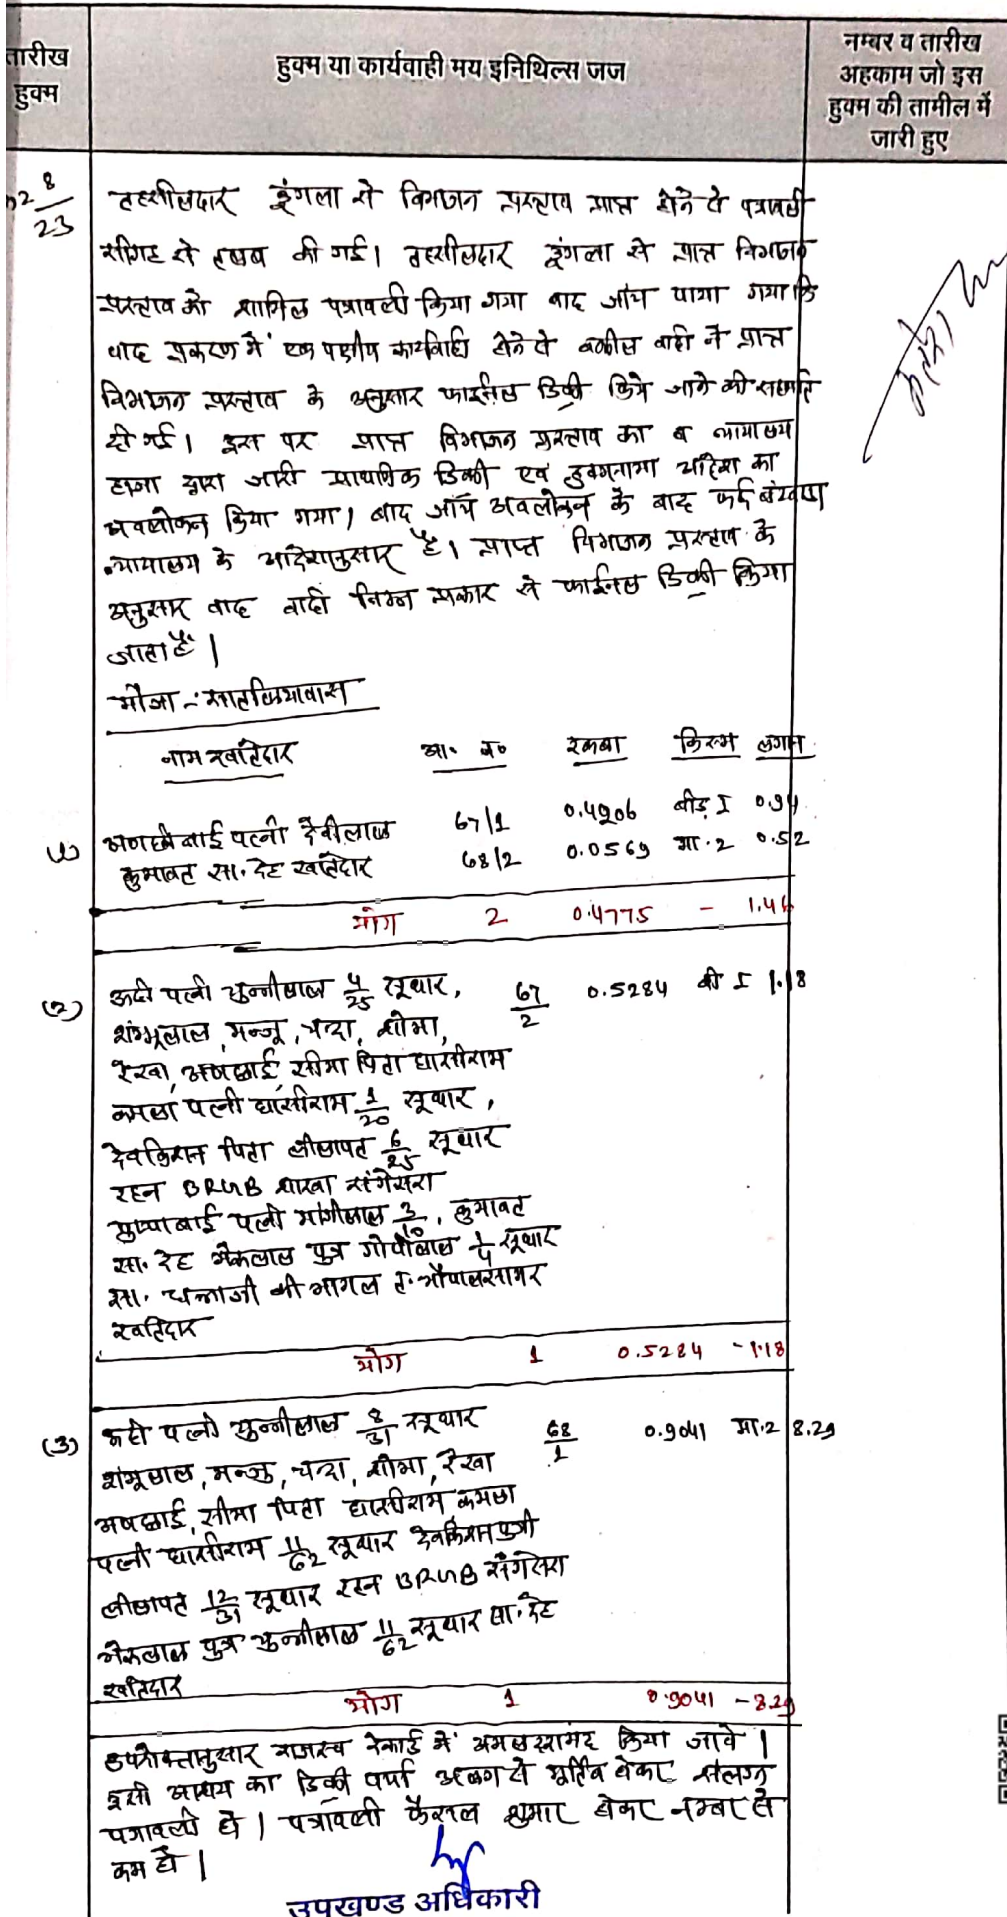 तारीख
हुक्म
हुक्म या कार्यवाही मय इनिथिल्स जज
नम्बर व तारीख
अहकाम जो इस
हुक्म की तामील में
जारी हुए
2 8/23
तहसीलदार डूंगला से विभाजन प्रस्ताव प्राप्त होने से पत्रावली
सीगह से तलब की गई। तहसीलदार डूंगला से प्राप्त विभाजन
प्रस्ताव को शामिल पत्रावली किया गया बाद जांच पाया गया कि
वाद प्रकरण में एक पक्षीय कार्यवाही होने से वकील वादी ने प्राप्त
विभाजन प्रस्ताव के अनुसार फाईनल डिक्री किये जाने की सहमति
दी गई। इस पर प्राप्त विभाजन प्रस्ताव का व न्यायालय
हाजा द्वारा जारी प्राथमिक डिक्री एवं हुक्मनामा आदेश का
अवलोकन किया गया। बाद जाँच अवलोकन के बाद फर्द बंटवारा
न्यायालय के आदेशानुसार है। प्राप्त विभाजन प्रस्ताव के
अनुसार वाद वादी निम्न प्रकार से फाईनल डिक्री किया
जाता है।
मौजा :-
नाम खातेदार आ. न० रकबा किस्म लगान
(1) पत्नी देवीलाल 67/1 0.4206 बीड़ I 0.94
कुमावत सा. देह खातेदार 68/2 0.0569 मा.2 0.52
योग 2 0.4775 - 1.46
(2) पत्नी चुन्नीलाल 4/25 सूथार, 67/2 0.5284 बी I 1.18
शंभूलाल, मन्जू, चन्दा, शोभा,
रेखा, सीमा पिता घासीराम
कमला पत्नी घासीराम 1/20 सूथार,
देवकिशन पिता 6/25 सूथार
रहन BRGB शाखा संगेसरा
पुष्पाबाई पत्नी मांगीलाल 3/10, कुमावत
सा. देह भैरूलाल पुत्र गोपीलाल 1/4 सूथार
सा. की भागल त. भोपालसागर
खातेदार
योग 1 0.5284 - 1.18
(3) पत्नी चुन्नीलाल 8/31 सूथार 68/1 0.9041 मा.2 8.29
शंभूलाल, मन्जु, चन्दा, शोभा, रेखा
सीमा पिता घासीराम, कमला
पत्नी घासीराम 11/62 सूथार देवकिशन
12/31 सूथार रहन BRGB संगेसरा
भैरूलाल पुत्र चुन्नीलाल 11/62 सूथार सा. देह
खातेदार
योग 1 0.9041 - 8.29
उपरोक्तानुसार राजस्व रेकार्ड में अमलदरामद किया जावे।
इसी आशय का डिक्री पर्चा अलग से मुर्तिब होकर संलग्न
पत्रावली हो। पत्रावली फैसल शुमार होकर नम्बर से
कम हो।
उपखण्ड अधिकारी